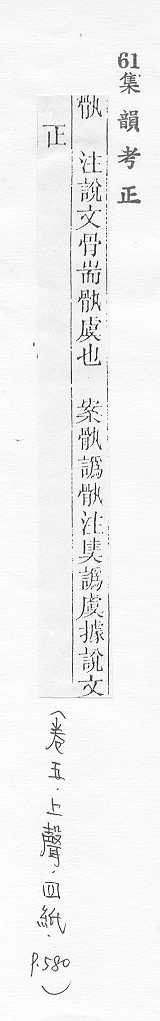 61集韻考正
骫 注說文骨耑骫虔也 案骫譌骫注奊譌虔據說文
正
(卷五.上聲.四紙.
P.580)